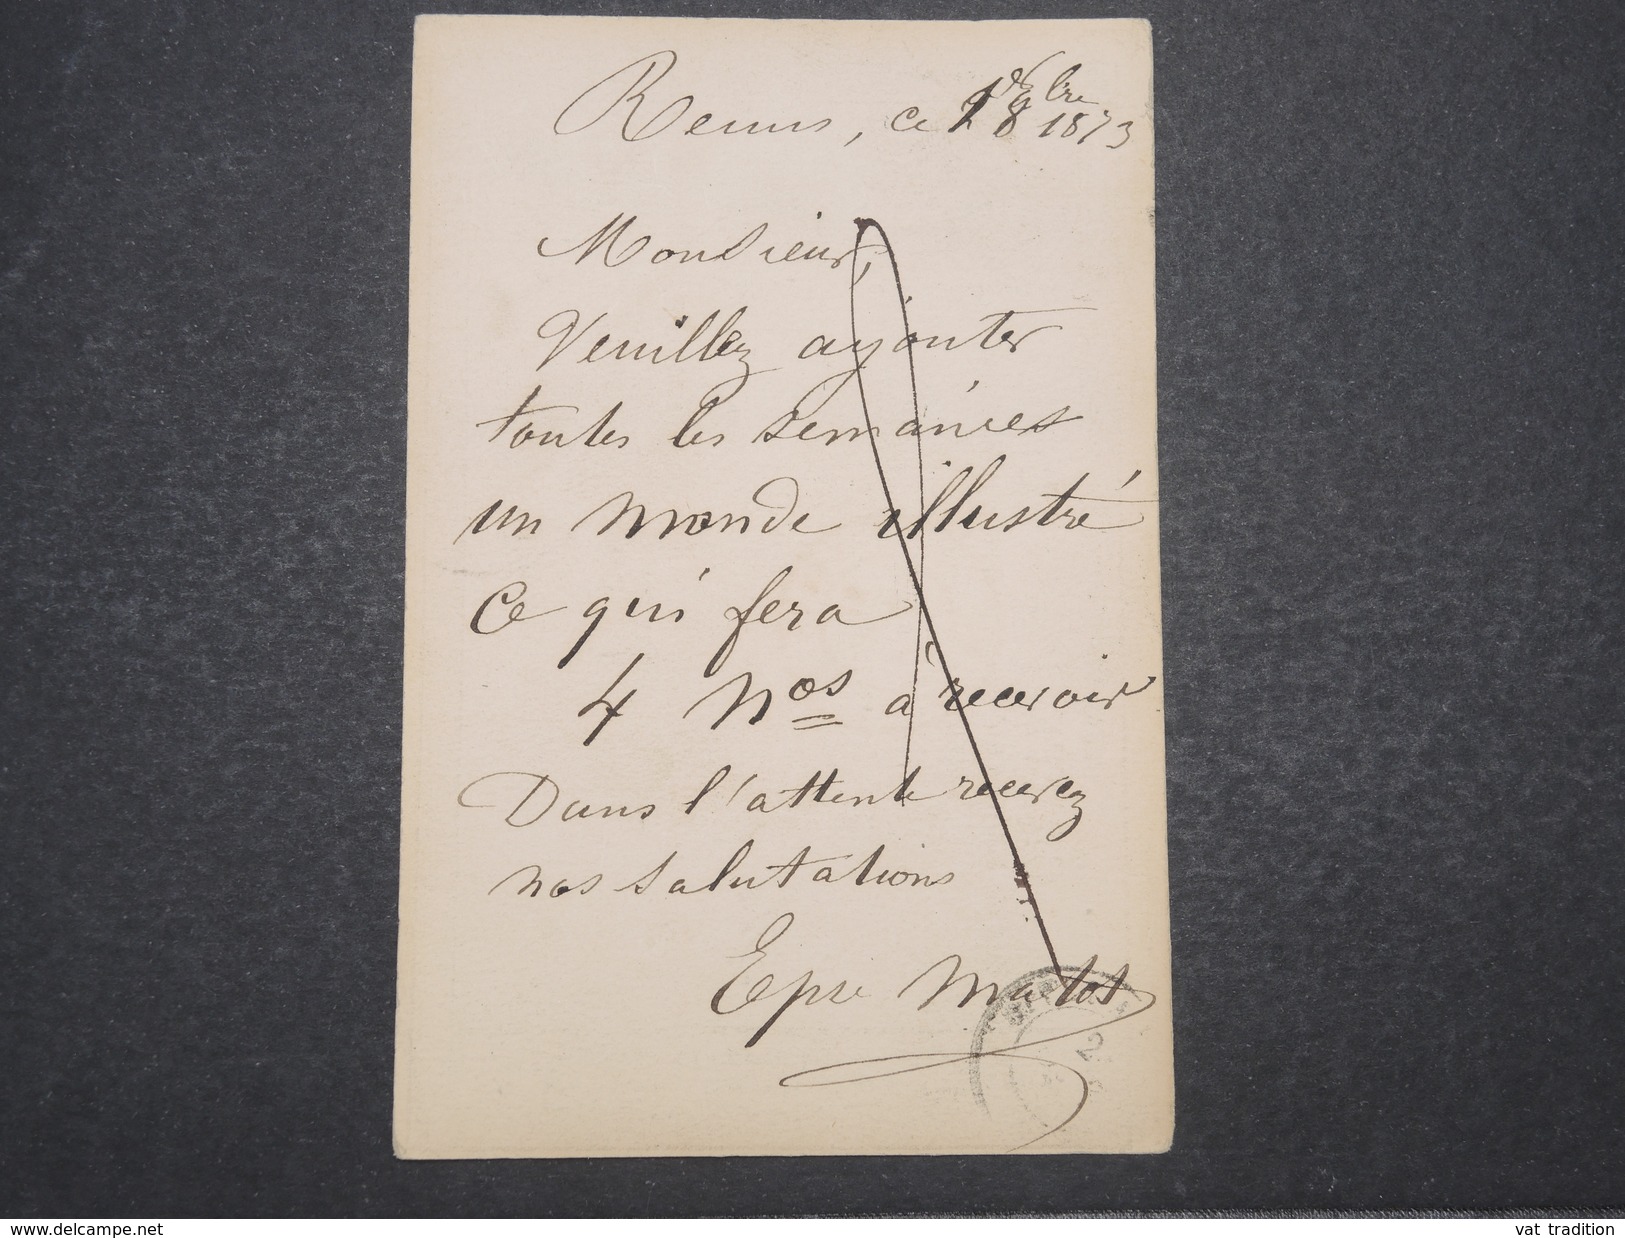 Reims, ce 8bre 1873
Monsieur,
Veuillez ajouter
toutes les semaines
un monde illustré
ce qui fera
4 Nos à recevoir
Dans l'attente recevez
nos salutations
Epse Matot
2
vat tradition
www.delcampe.net